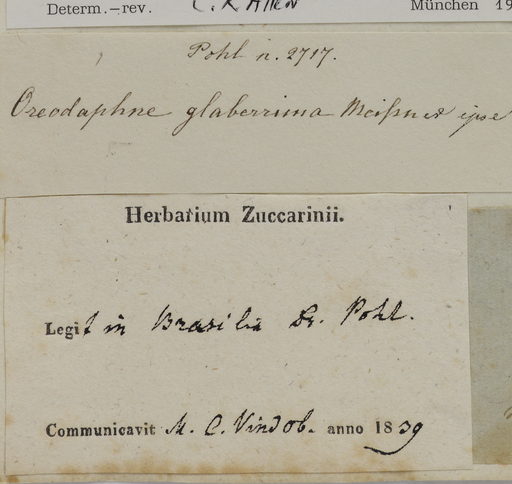 Determ.-rev. C. K Allen München 19
Pohl n. 2717.
Oreodaphne glaberrima Meißner ipse
Herbarium Zuccarinii.
Legit in Brasilia Dr. Pohl.
Communicavit M. C. Vindob. anno 1839